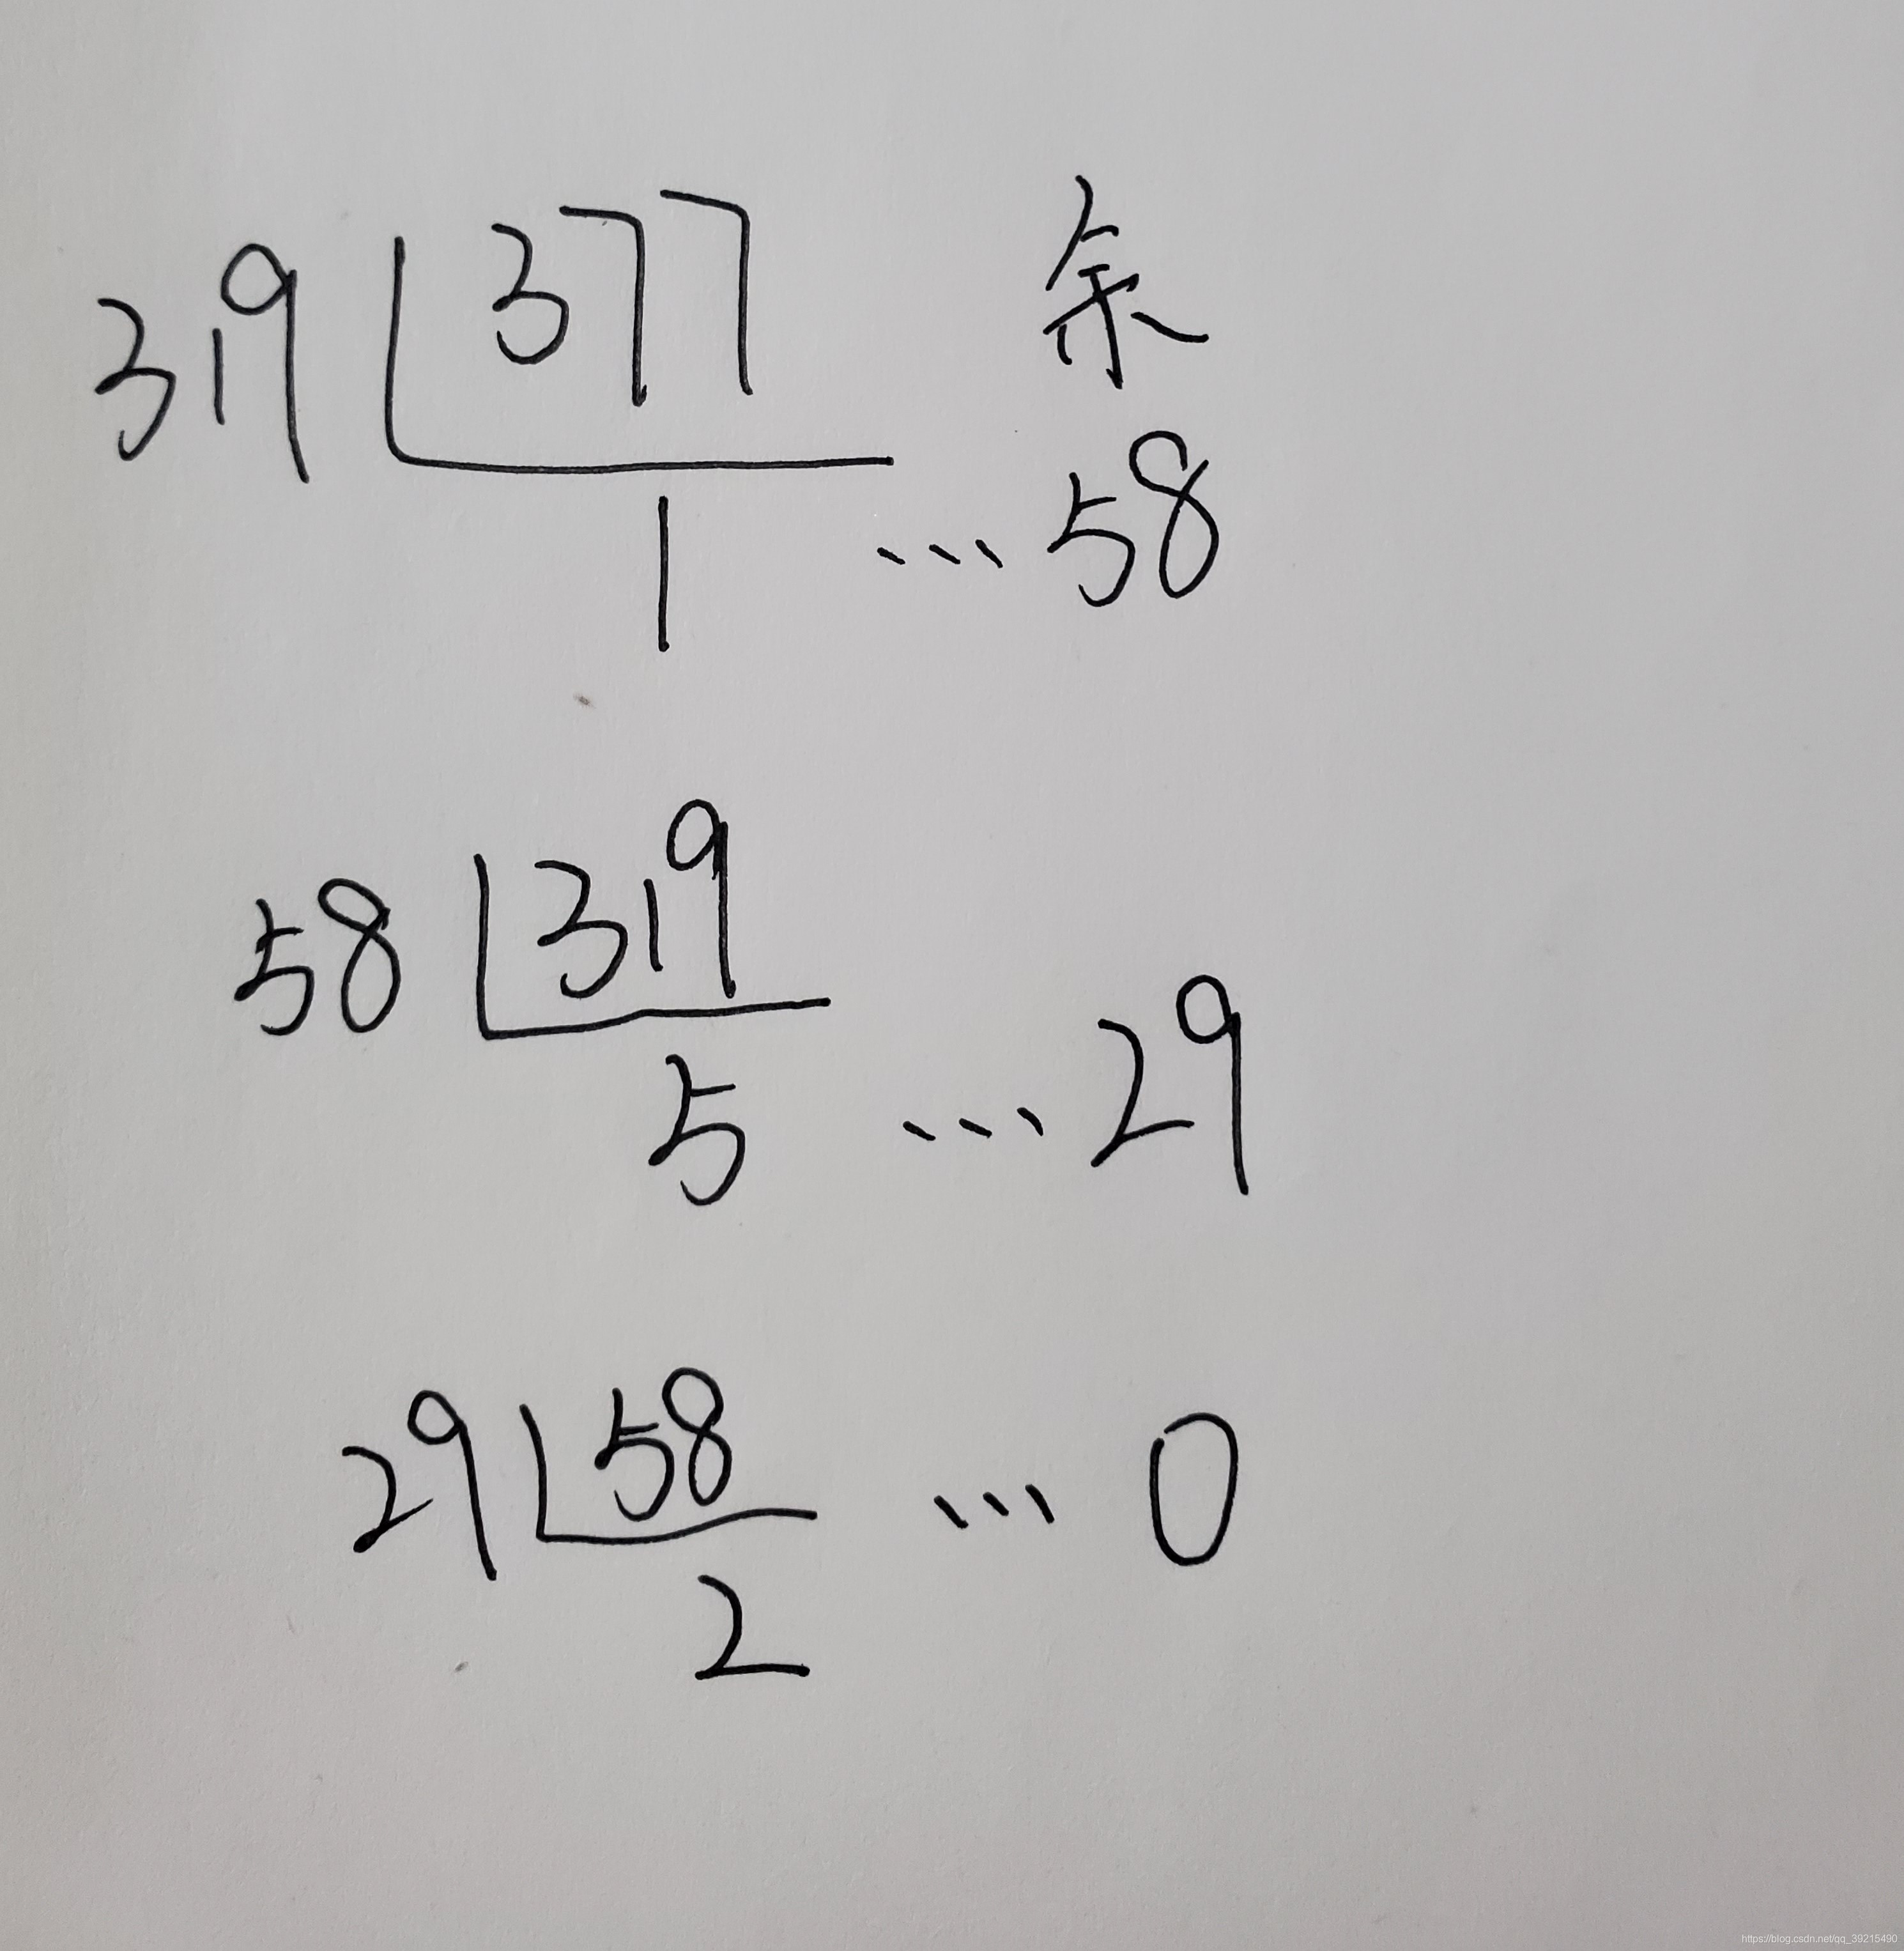 319 377 余
1 ... 58
58 319
5 ... 29
29 58 ... 0
2
https://blog.csdn.net/qq_39215490